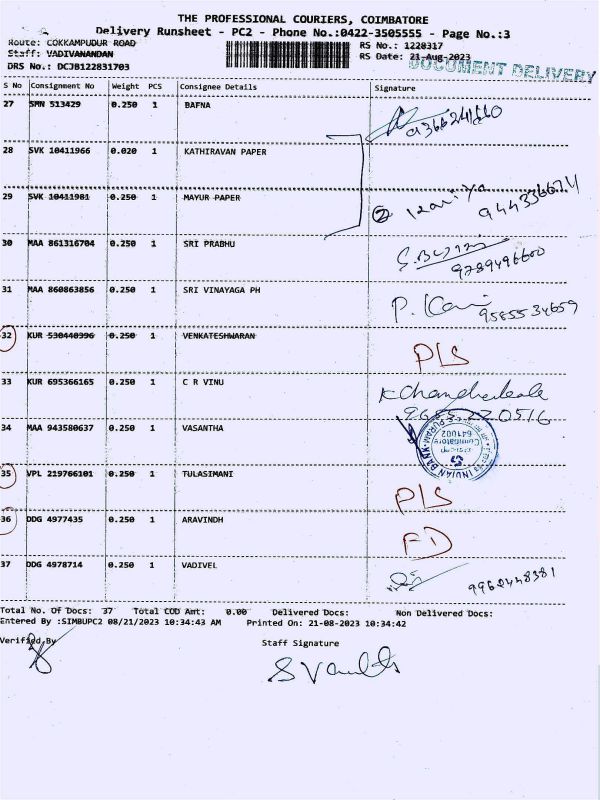 THE PROFESSIONAL COURIERS, COIMBATORE
Delivery Runsheet - PC2 - Phone No.:0422-3505555 - Page No.:3
Route: COKKAMPUDUR ROAD
RS No.: 1228317
Staff: VADIVANANDAN
RS Date: 21-Aug-2023
DRS No.: DCJB122831703
DOCUMENT DELIVERY
S No Consignment No Weight PCS Consignee Details Signature
27 SMN 513429 0.250 1 BAFNA
28 SVK 10411966 0.020 1 KATHIRAVAN PAPER
29 SVK 10411981 0.250 1 MAYUR PAPER
2
30 MAA 861316704 0.250 1 SRI PRABHU
9789496600
31 MAA 860863856 0.250 1 SRI VINAYAGA PH
P. Kani 9585534659
32 KUR 530440396 0.250 1 VENKATESHWARAN
PLS
33 KUR 695366165 0.250 1 C R VINU
34 MAA 943580637 0.250 1 VASANTHA
INDIAN BANK
641002
35 VPL 219766101 0.250 1 TULASIMANI
PLS
36 DDG 4977435 0.250 1 ARAVINDH
FD
37 DDG 4978714 0.250 1 VADIVEL
Total No. Of Docs: 37 Total COD Amt: 0.00 Delivered Docs: Non Delivered Docs:
Entered By :SIMBUPC2 08/21/2023 10:34:43 AM Printed On: 21-08-2023 10:34:42
Verified By
Staff Signature